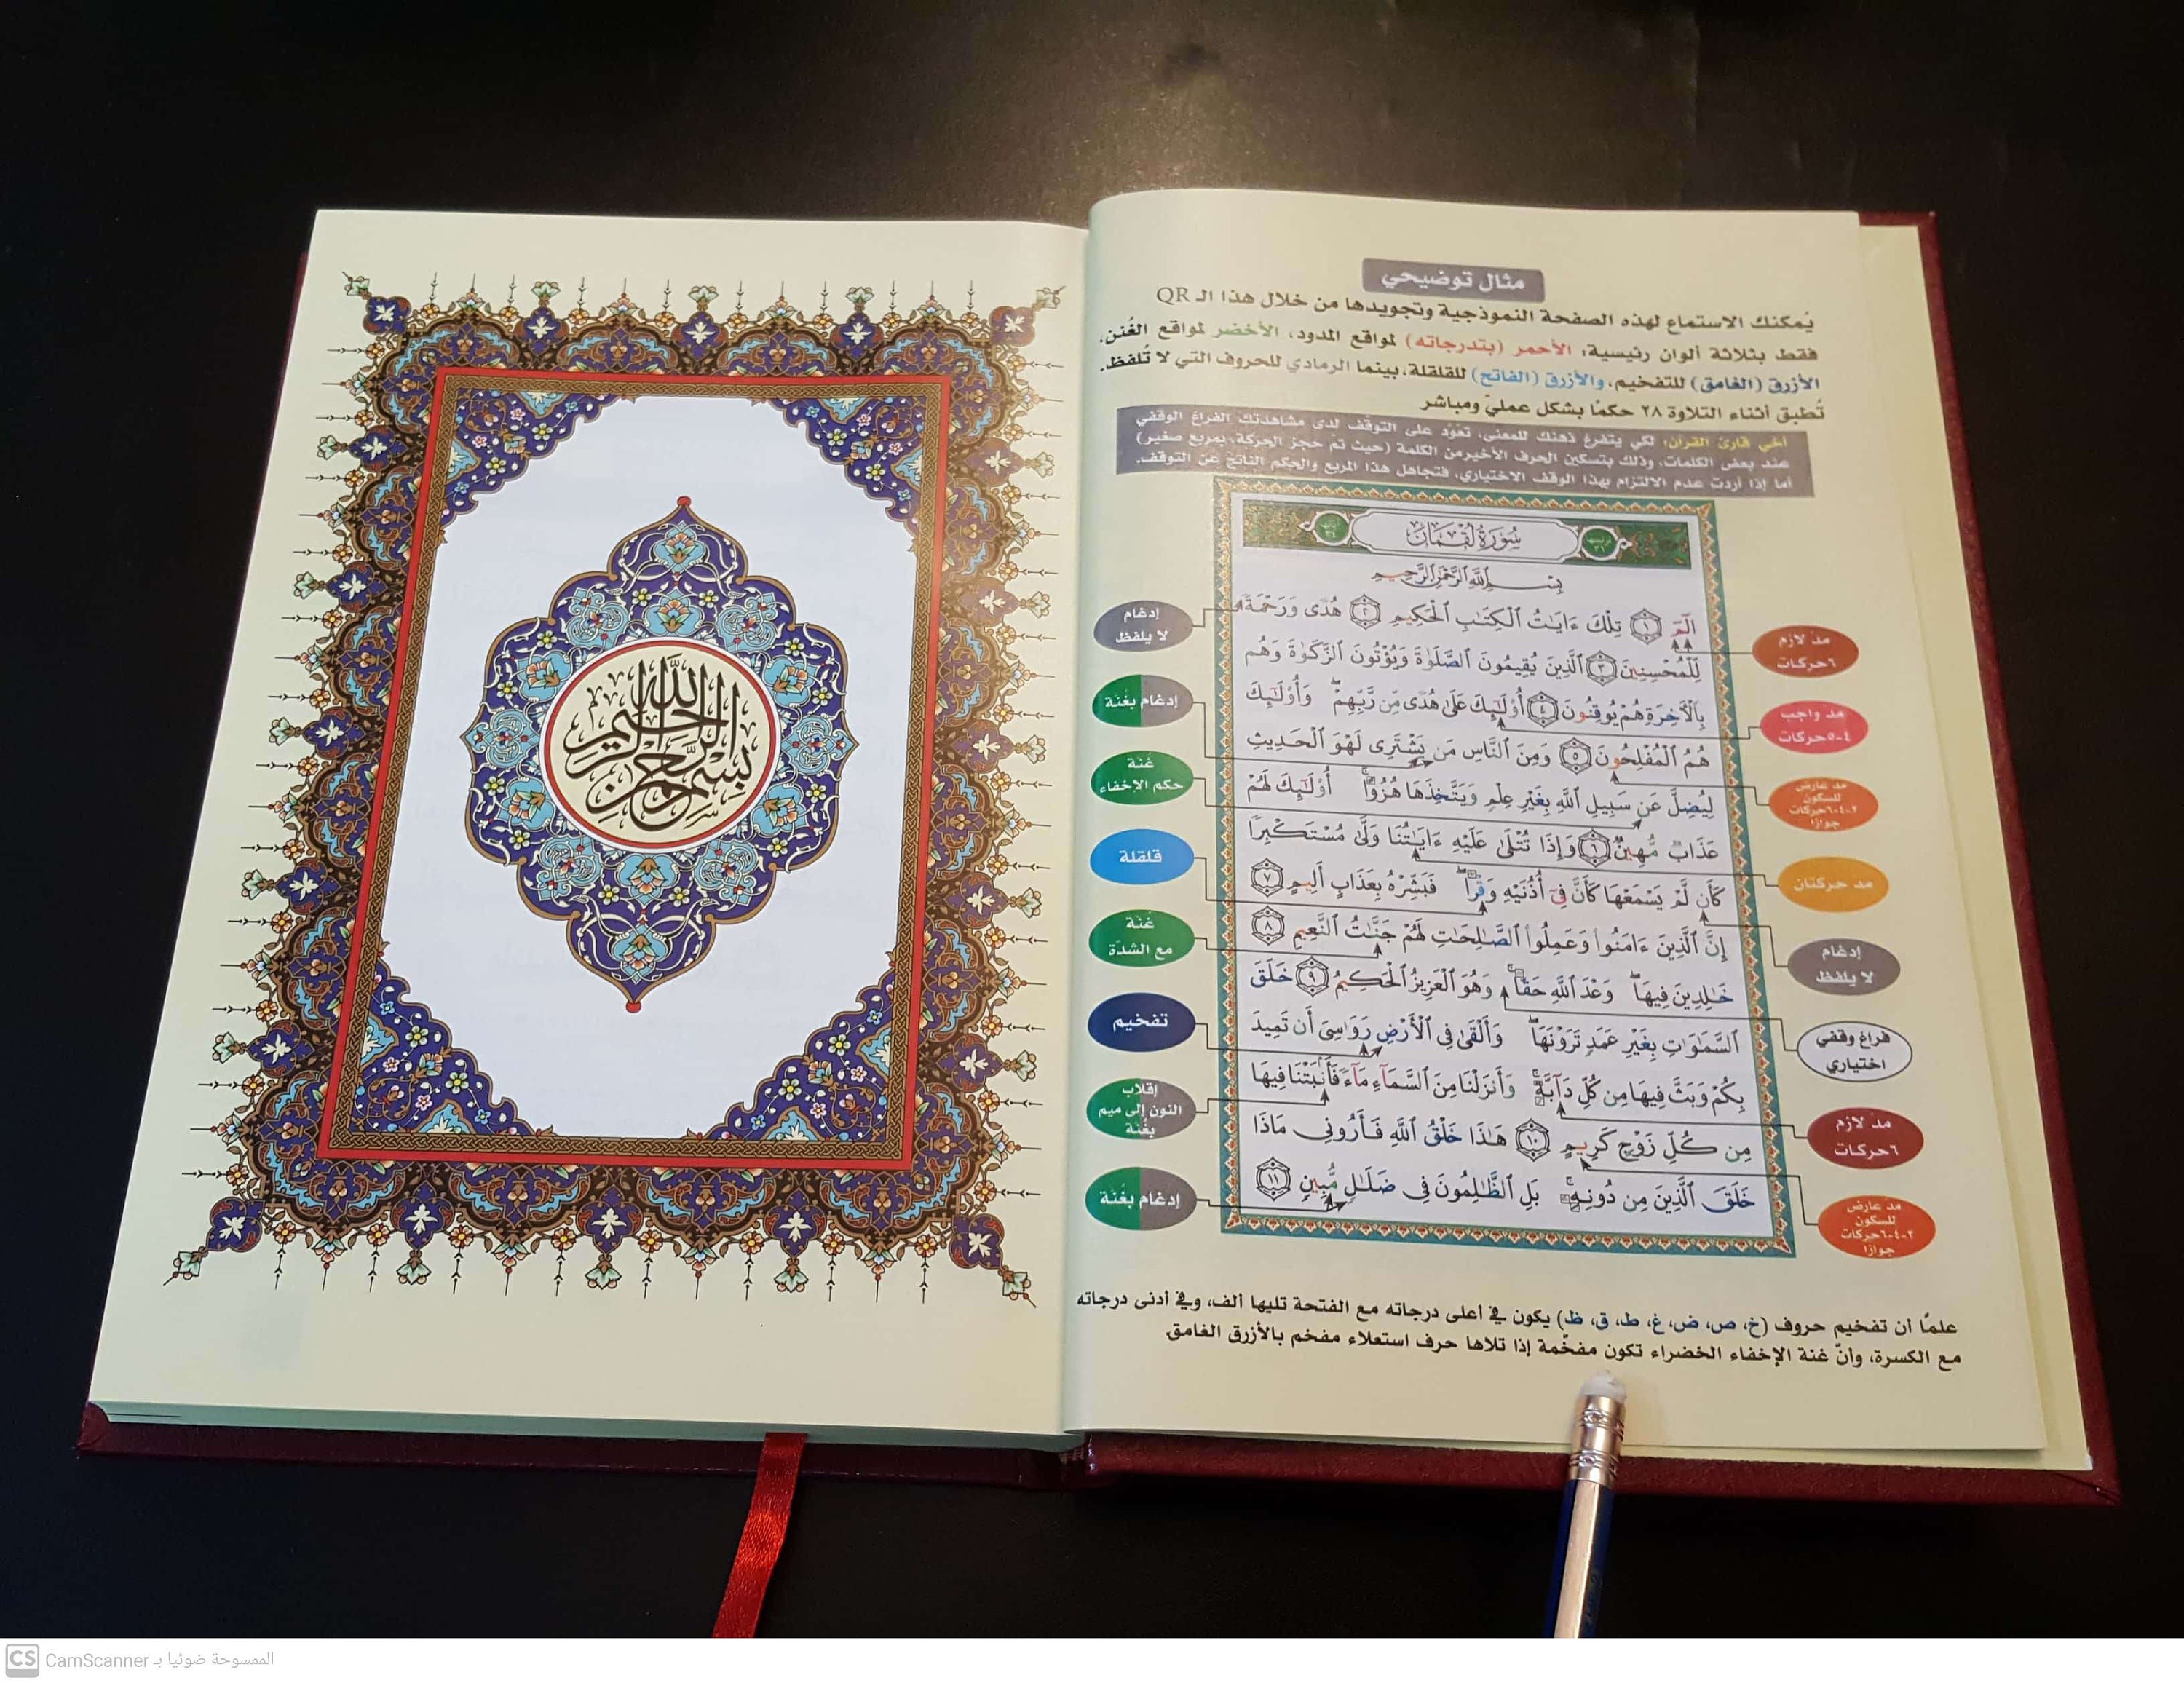 مثال توضيحي
يُمكنك الاستماع لهذه الصفحة النموذجية وتجويدها من خلال هذا الـ QR
فقط بثلاثة ألوان رئيسية: الأحمر (بتدرجاته) لمواقع المدود، الأخضر لمواقع الغُنن،
الأزرق (الغامق) للتفخيم، والأزرق (الفاتح) للقلقلة، بينما الرمادي للحروف التي لا تُلفظ.
تُطبق أثناء التلاوة ٢٨ حكمًا بشكل عمليّ ومباشر
أخي قارئ القرآن: لكي يتفرغ ذهنك للمعنى، تعوّد على التوقف لدى مشاهدتك الفراغ الوقفي
عند بعض الكلمات، وذلك بتسكين الحرف الأخير من الكلمة (حيث تم حجز الحركة، بمربع صغير)
أما إذا أردت عدم الالتزام بهذا الوقف الاختياري، فتجاهل هذا المربع والحكم الناتج عن التوقف.
ترتيبها ٣١
سُورَةُ لُقْمَان
آياتها ٣٤
بِسْمِ ٱللَّهِ ٱلرَّحْمَٰنِ ٱلرَّحِيمِ
الٓمٓ ١ تِلْكَ ءَايَٰتُ ٱلْكِتَٰبِ ٱلْحَكِيمِ ٢ هُدًى وَرَحْمَةً
لِّلْمُحْسِنِينَ ٣ ٱلَّذِينَ يُقِيمُونَ ٱلصَّلَوٰةَ وَيُؤْتُونَ ٱلزَّكَوٰةَ وَهُم
بِٱلْأَخِرَةِ هُمْ يُوقِنُونَ ٤ أُوْلَٰٓئِكَ عَلَىٰ هُدًى مِّن رَّبِّهِمْۖ وَأُوْلَٰٓئِكَ
هُمُ ٱلْمُفْلِحُونَ ٥ وَمِنَ ٱلنَّاسِ مَن يَشْتَرِى لَهْوَ ٱلْحَدِيثِ
لِيُضِلَّ عَن سَبِيلِ ٱللَّهِ بِغَيْرِ عِلْمٍ وَيَتَّخِذَهَا هُزُوًاۚ أُوْلَٰٓئِكَ لَهُمْ
عَذَابٌ مُّهِينٌ ٦ وَإِذَا تُتْلَىٰ عَلَيْهِ ءَايَٰتُنَا وَلَّىٰ مُسْتَكْبِرًا
كَأَن لَّمْ يَسْمَعْهَا كَأَنَّ فِىٓ أُذُنَيْهِ وَقْرًاۖ فَبَشِّرْهُ بِعَذَابٍ أَلِيمٍ ٧
إِنَّ ٱلَّذِينَ ءَامَنُواْ وَعَمِلُواْ ٱلصَّٰلِحَٰتِ لَهُمْ جَنَّٰتُ ٱلنَّعِيمِ ٨
خَٰلِدِينَ فِيهَاۖ وَعْدَ ٱللَّهِ حَقًّاۚ وَهُوَ ٱلْعَزِيزُ ٱلْحَكِيمُ ٩ خَلَقَ
ٱلسَّمَٰوَٰتِ بِغَيْرِ عَمَدٍ تَرَوْنَهَاۖ وَأَلْقَىٰ فِى ٱلْأَرْضِ رَوَٰسِىَ أَن تَمِيدَ
بِكُمْ وَبَثَّ فِيهَا مِن كُلِّ دَآبَّةٍۚ وَأَنزَلْنَا مِنَ ٱلسَّمَآءِ مَآءً فَأَنۢبَتْنَا فِيهَا
مِن كُلِّ زَوْجٍ كَرِيمٍ ١٠ هَٰذَا خَلْقُ ٱللَّهِ فَأَرُونِى مَاذَا
خَلَقَ ٱلَّذِينَ مِن دُونِهِۦۚ بَلِ ٱلظَّٰلِمُونَ فِى ضَلَٰلٍ مُّبِينٍ ١١
مد لازم
٦ حركات
مد واجب
٤-٥ حركات
مد عارض
للسكون
٢-٤-٦ حركات
جوازًا
مد حركتان
إدغام
لا يلفظ
فراغ وقفي
اختياري
مد لازم
٦ حركات
مد عارض
للسكون
٢-٤-٦ حركات
جوازًا
إدغام
لا يلفظ
إدغام بغُنّة
غُنة
حكم الإخفاء
قلقلة
غُنة
مع الشدّة
تفخيم
إقلاب
النون إلى ميم
بغُنّة
إدغام بغُنّة
علمًا أن تفخيم حروف (خ، ص، ض، غ، ط، ق، ظ) يكون في أعلى درجاته مع الفتحة تليها ألف، وفي أدنى درجاته
مع الكسرة، وأنّ غنة الإخفاء الخضراء تكون مفخّمة إذا تلاها حرف استعلاء مفخم بالأزرق الغامق.
بسم الله الرحمن الرحيم
CS CamScanner الممسوحة ضوئيا بـ